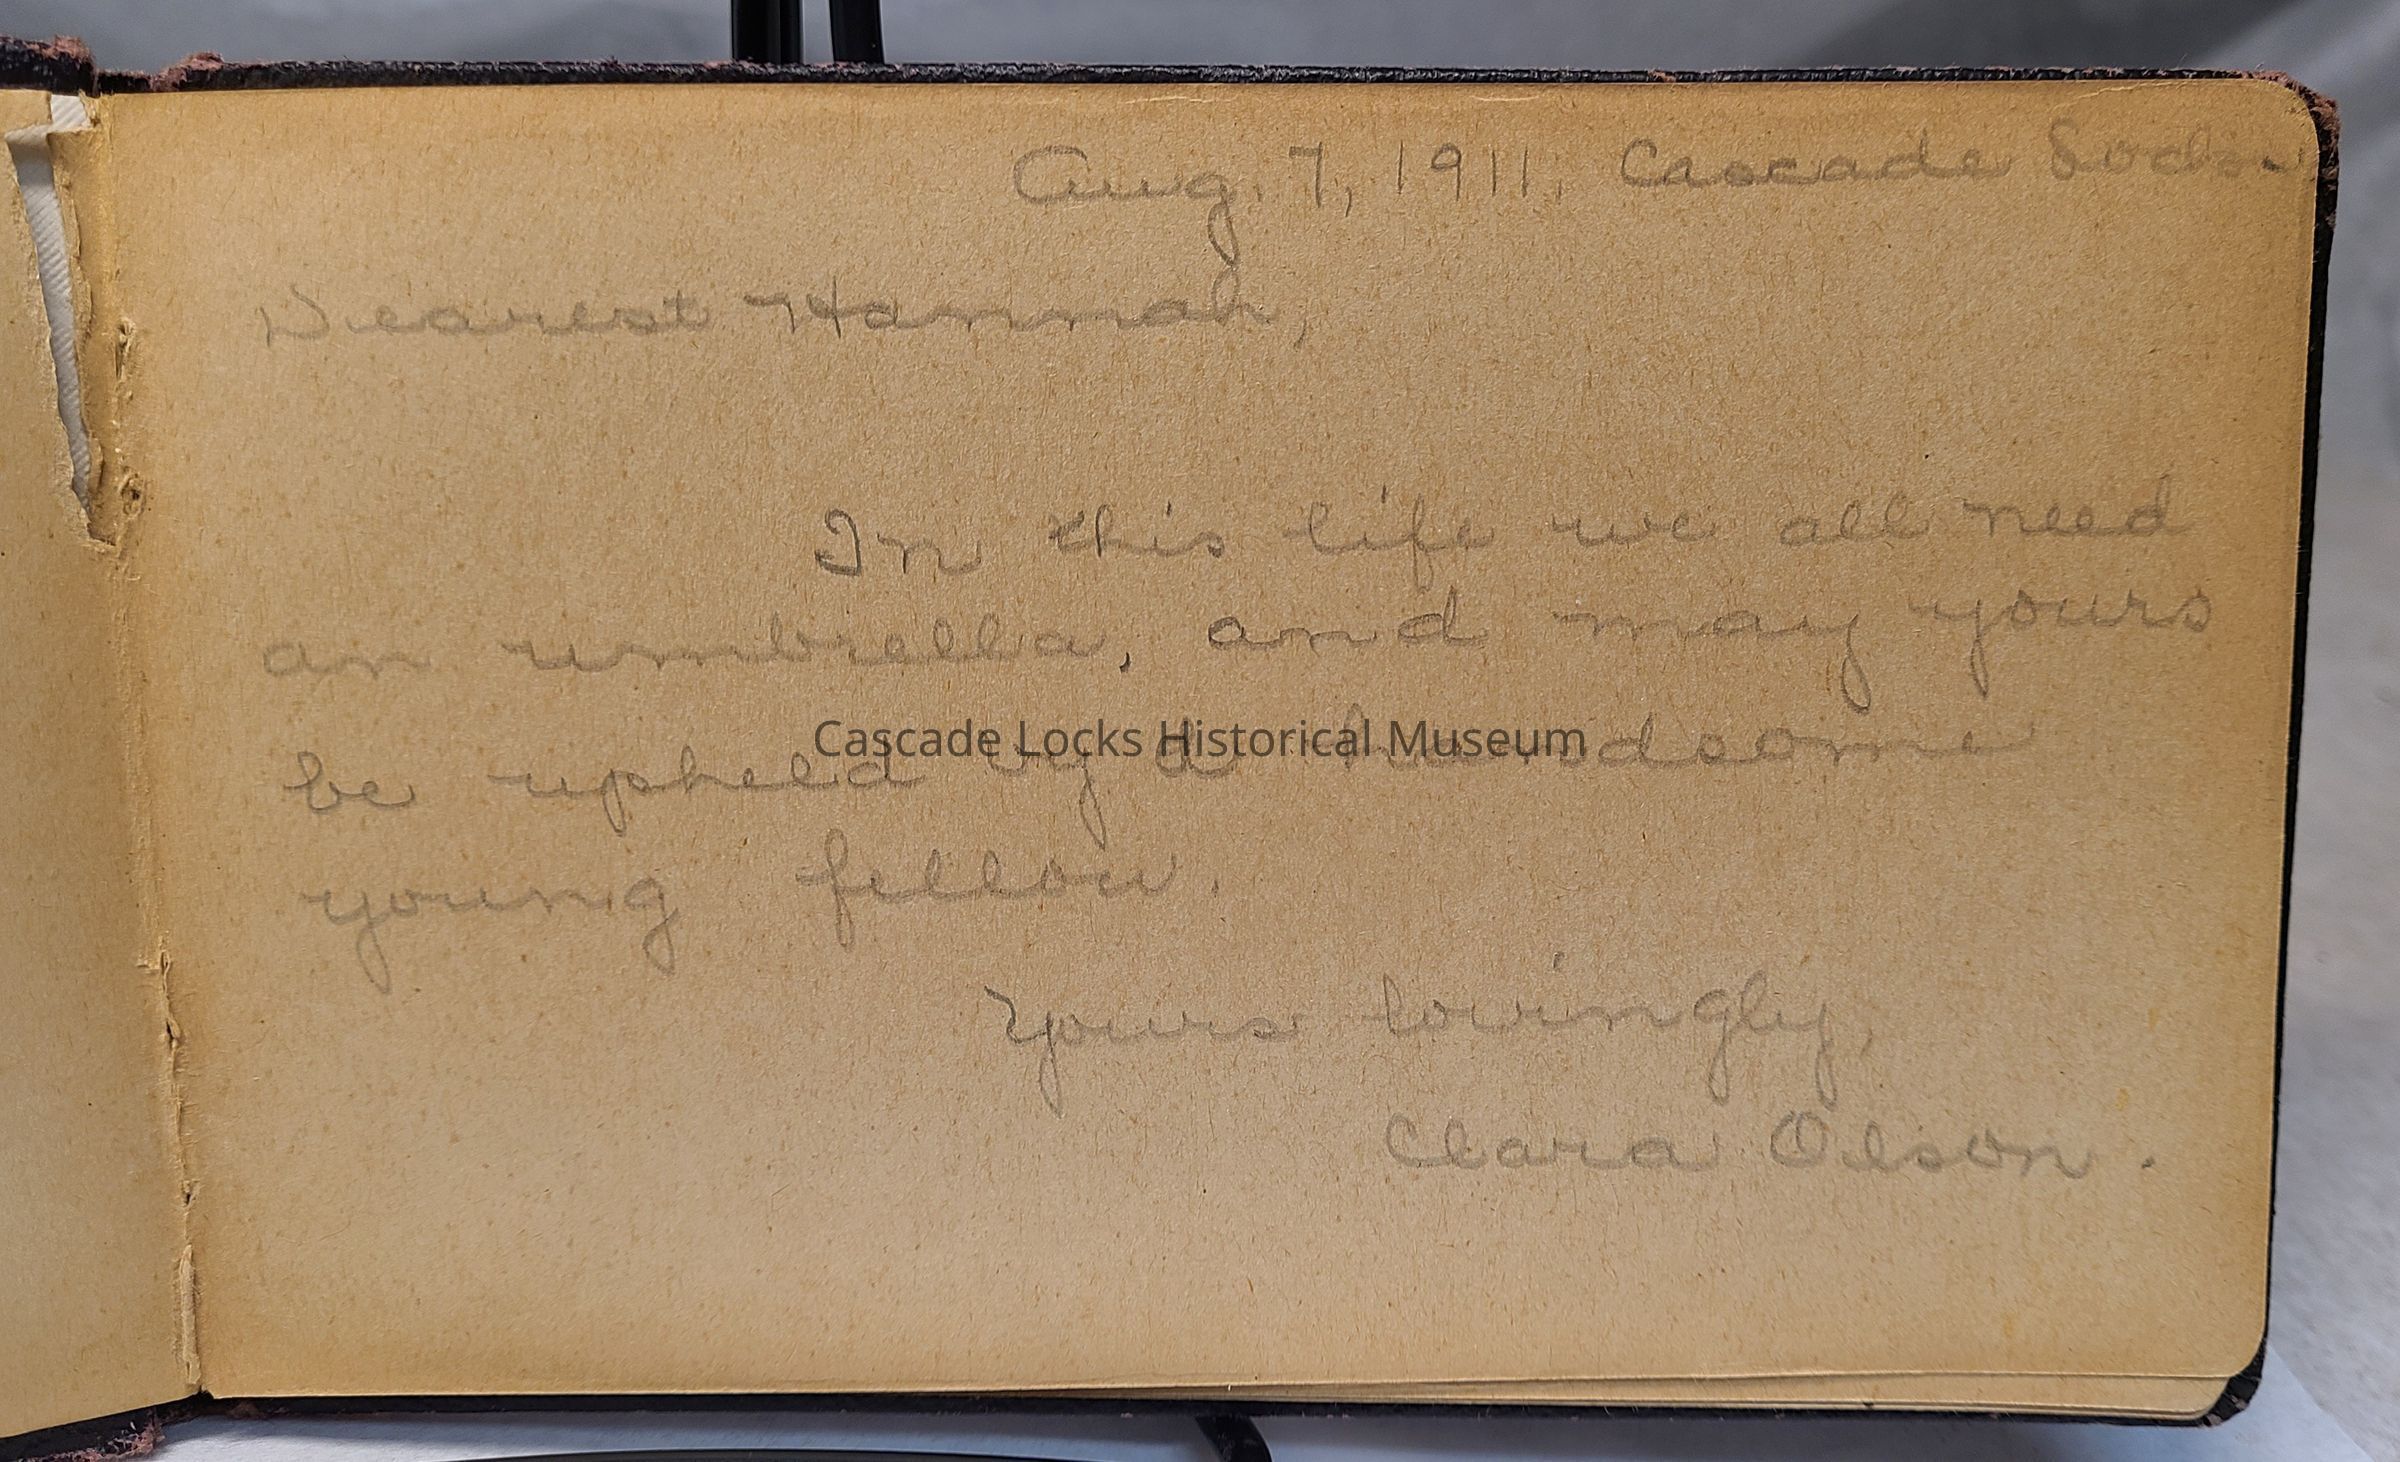 Aug. 7, 1911. Cascade
Dearest Hannah,
In this life we all need
an umbrella, and may yours
be upheld by a handsome
Cascade Locks Historical Museum
young fellow.
Yours lovingly,
Clara Olson.